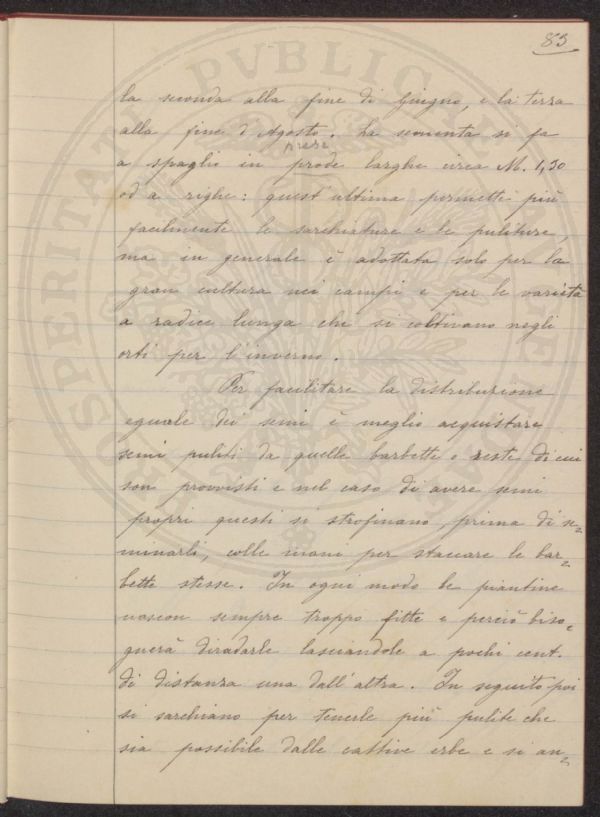 83
la seconda alla fine di Giugno, e la terza
alla fine d'Agosto. La sementa si fa
prese
a spaglio in prode larghe circa M. 1,30
od a righe: quest'ultima permetti più
facilmente le sarchiature e le puliture,
ma in generale è adottata solo per la
gran cultura nei campi e per le varietà
a radice lunga che si coltivano negli
orti per l'inverno.
Per facilitare la distribuzione
eguale dei semi è meglio acquistare
semi puliti da quelle barbette o reste di cui
son provvisti e nel caso di avere semi
propri questi si strofinano, prima di se=
minarli, colle mani per staccare le bar=
bette stesse. In ogni modo le piantine
nascon sempre troppo fitte e perciò biso=
gnerà diradarle lasciandole a pochi cent.
di distanza una dall'altra. In seguito poi
si sarchiano per tenerle più pulite che
sia possibile dalle cattive erbe e si an=
PVBLICAE
PROSPERITATI